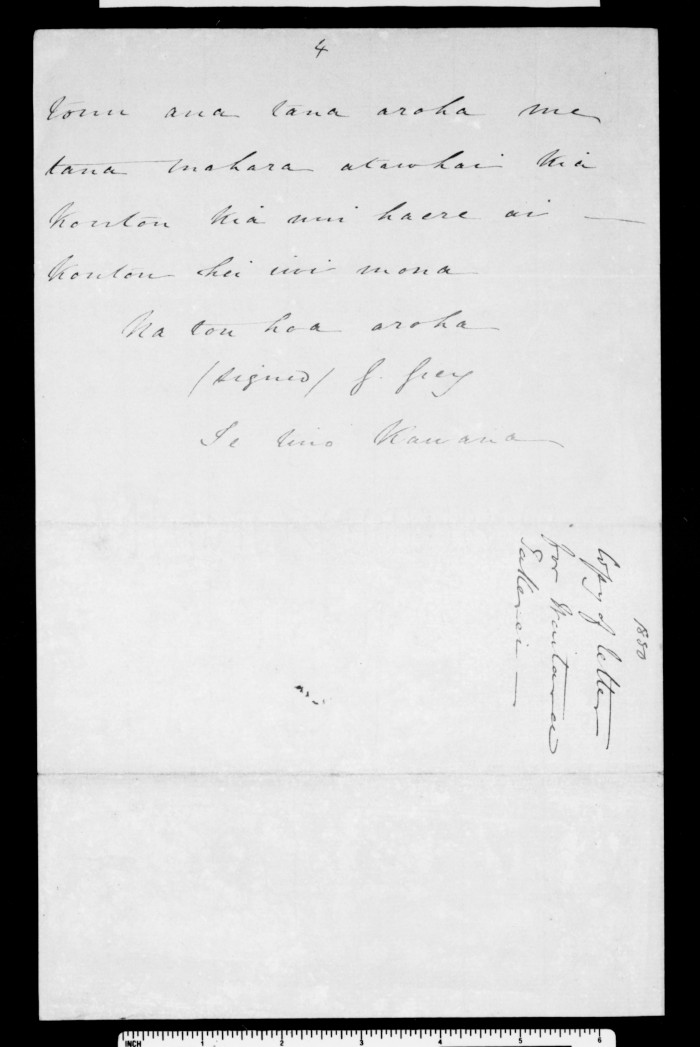 4
tonu ana tana aroha me
tana mahara atawhai kia
koutou kia nui haere ai —
koutou hei iwi mona
Na tou hoa aroha
(signed) G. Grey
Te tino Kawana
1850
Copy of letter
for Waitaoro
Takerei —
INCH 1 2 3 4 5 6